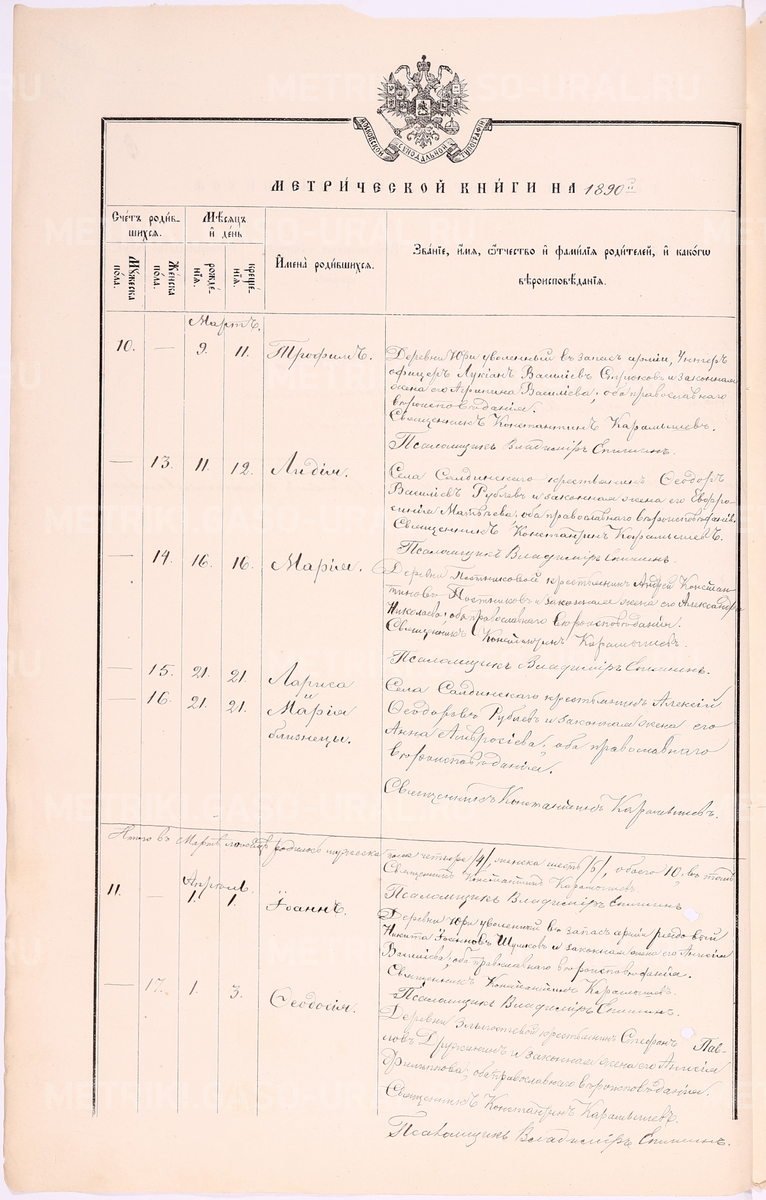 МОСКОВСКОЙ СѴНОДАЛЬНОЙ ТИПОГРАФІИ
МЕТРИ́ЧЕСКОЙ КНИ́ГИ НА 1890 й
Сче́тъ роди́в-
шихся.
Мѣсяцъ
и҆ де́нь
Мꙋжеска по́ла.
Же́нска по́ла.
рожде́-
нїѧ.
креще́-
нїѧ.
И҆мена̀ роди́вшихся.
Зва́нїе, и҆́мѧ, ѻ҆́тчество и҆ фами́лїѧ роди́телей, и҆ како́гѡ
вѣроисповѣ́данїѧ.
Мартъ.
10. — 9. 11. Трофимъ. Деревни Юри уволенный въ запасъ арміи, Унтеръ
офицеръ Лукіанъ Васильевъ и законная
жена его Агрипина Васильева, оба православнаго
вѣроисповѣданія.
Священникъ Константинъ Карамышевъ.
Псаломщикъ Владиміръ
— 13. 11. 12. Лидія. Села Салдинскаго крестьянинъ Ѳеодоръ
Васильевъ Рублевъ и законная жена его Евфро-
синія Матвѣева, оба православнаго вѣроисповѣданія.
Священникъ Константинъ Карамышевъ.
Псаломщикъ Владиміръ
— 14. 16. 16. Марія. Деревни Постниковой крестьянинъ Андрей Констан-
тиновъ Постниковъ и законная жена его Александра
Николаева, оба православнаго вѣроисповѣданія.
Священникъ Константинъ Карамышевъ.
Псаломщикъ Владиміръ
— 15. 21. 21. Лариса
и
— 16. 21. 21. Марія
близнецы.
Села Салдинскаго крестьянинъ Алексій
Ѳеодоровъ Рублевъ и законная жена его
Анна Амвросіева, оба православнаго
вѣроисповѣданія.
Священникъ Константинъ Карамышевъ.
Итого въ Мартѣ мѣсяцѣ родилось мужеска пола четыре /4/, женска шесть /6/, обоего 10.
Священникъ Константинъ Карамышевъ
Псаломщикъ Владиміръ
Апрѣль.
11. — 1. 1. Іоаннъ. Деревни Юри уволенный въ запасъ арміи рядовой
Никита Іоанновъ и законная жена его Анисія
Васильева, оба православнаго вѣроисповѣданія.
Священникъ Константинъ Карамышевъ
Псаломщикъ Владиміръ
— 17. 1. 3. Ѳеодосія. Деревни крестьянинъ Стефанъ Пав-
ловъ Дружининъ и законная жена его Анисія
Филиппова, оба православнаго вѣроисповѣданія.
Священникъ Константинъ Карамышевъ.
Псаломщикъ Владиміръ